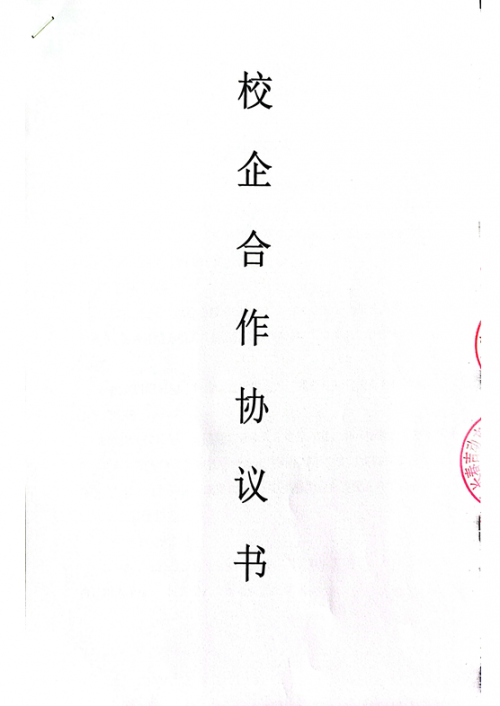 校企合作协议书